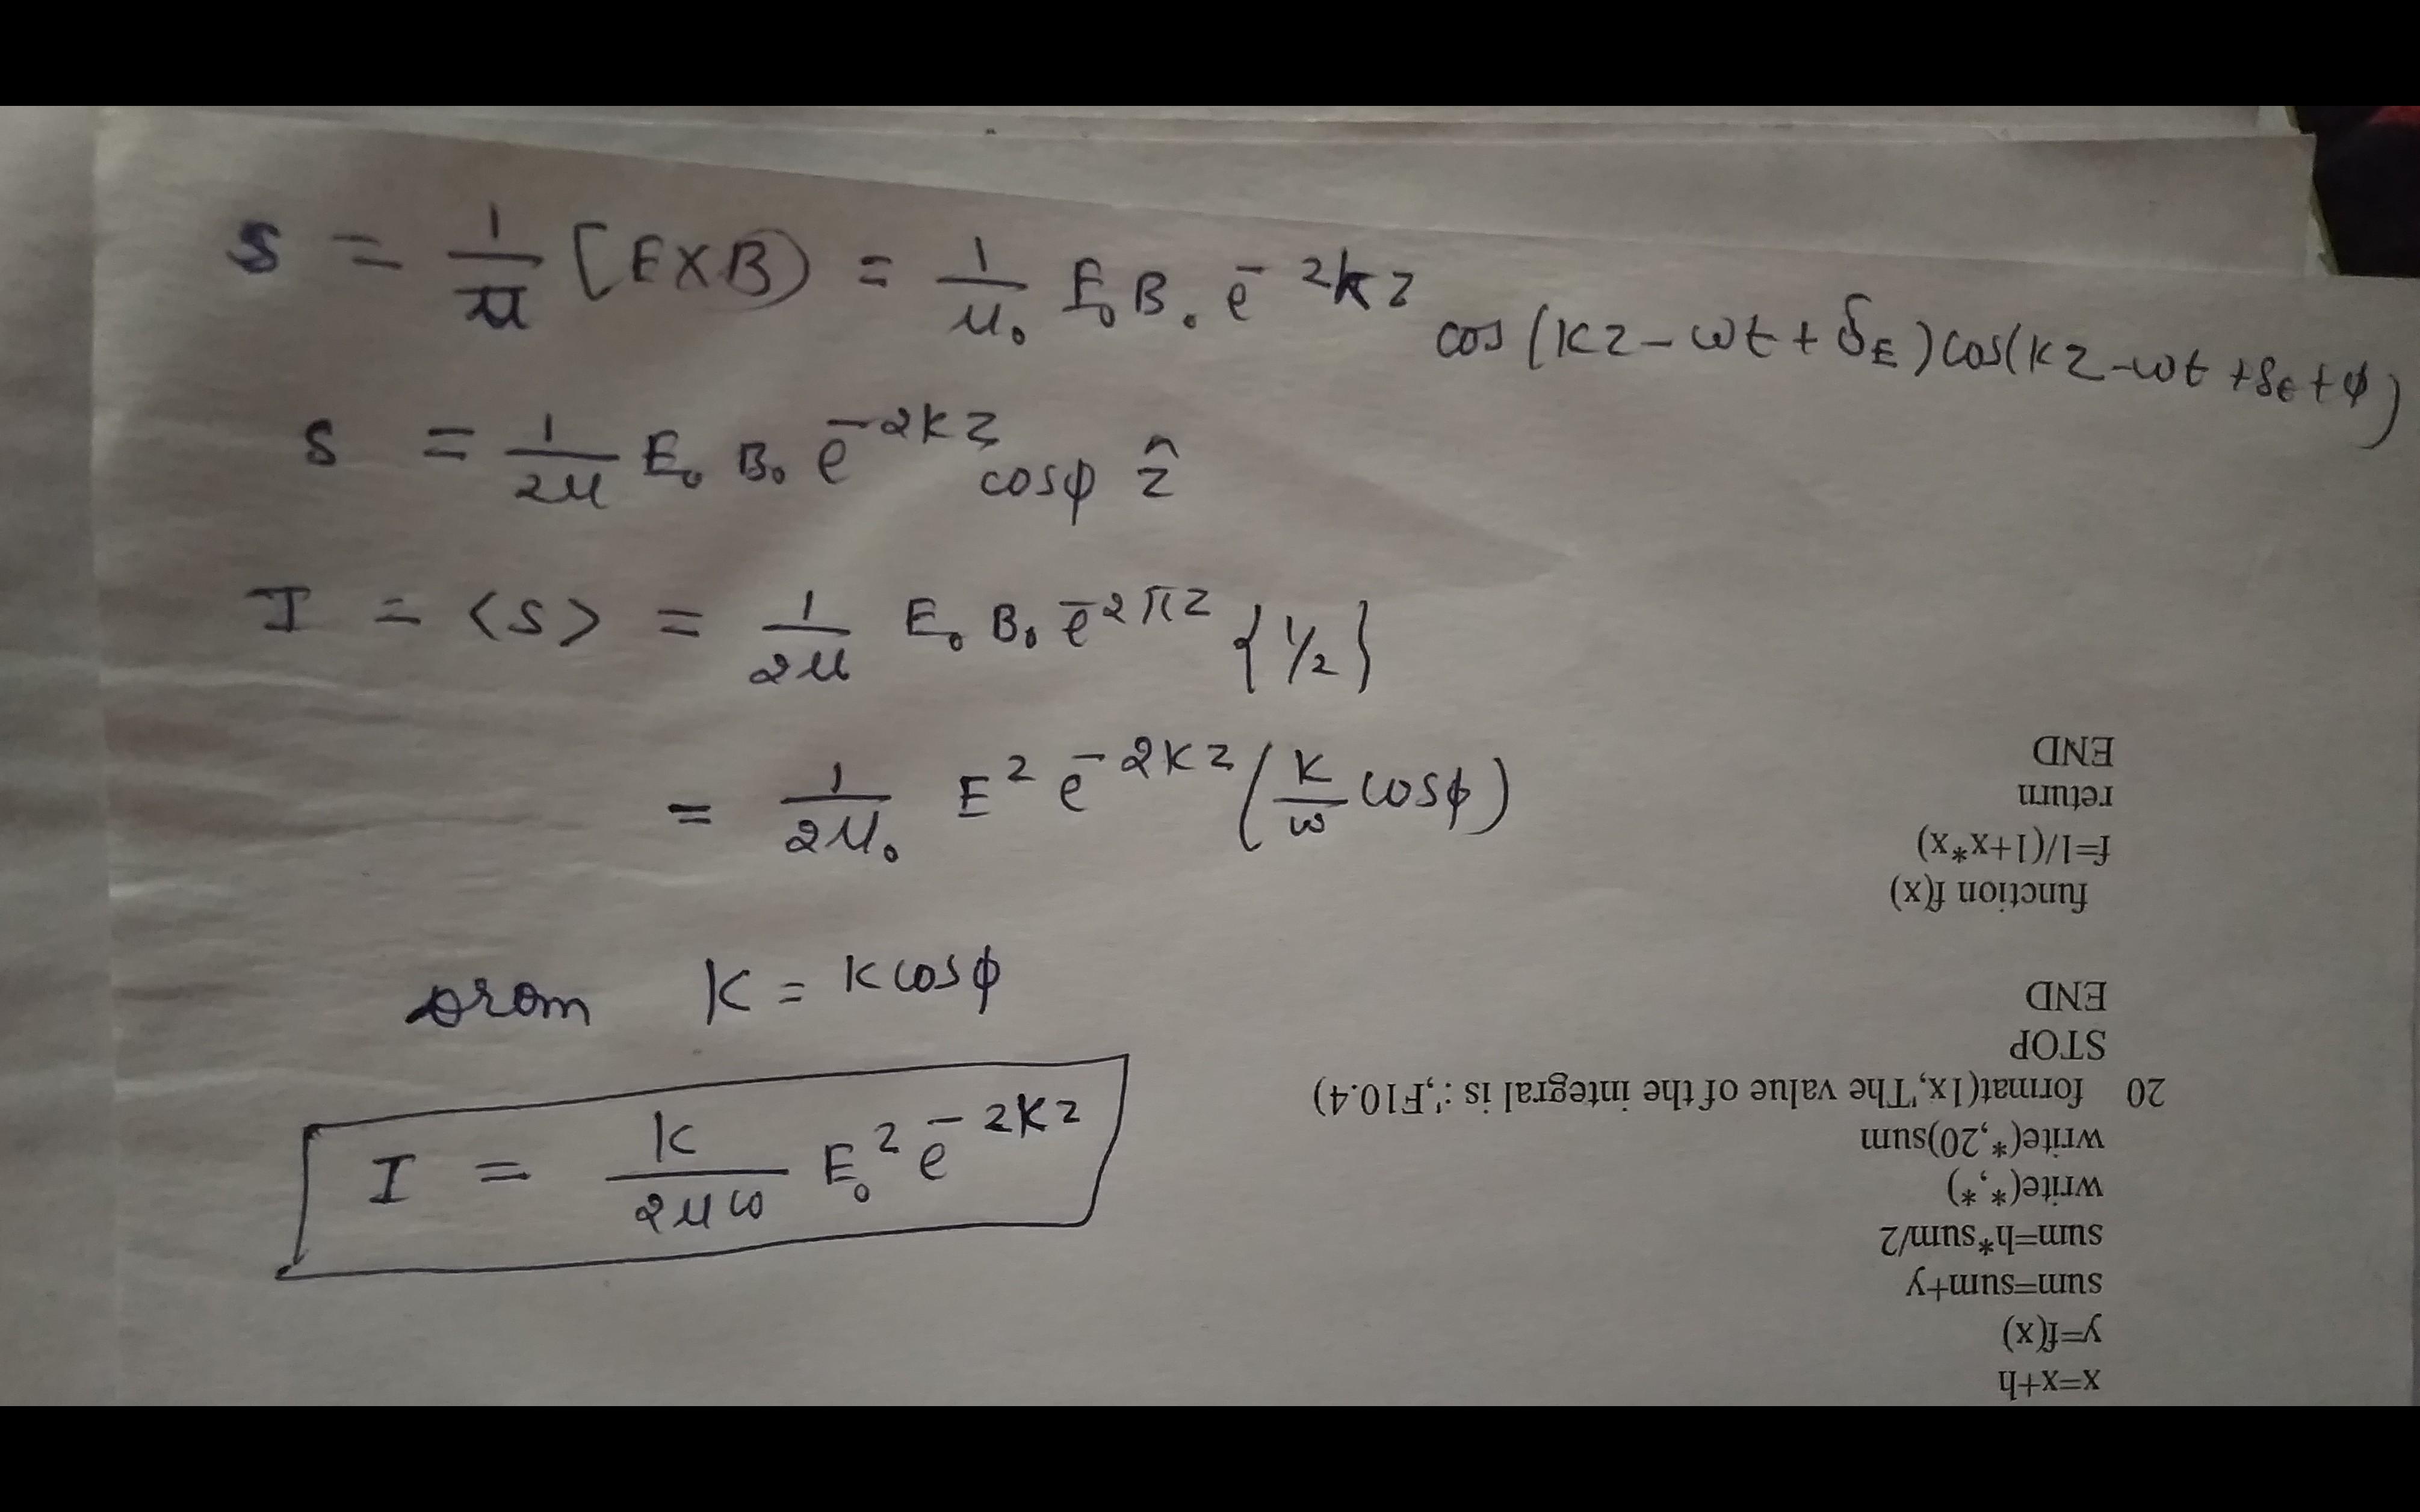 S = 1/μ [E×B) = 1/μ₀ E₀B₀ e^-2kz cos(kz-ωt+δ_E)cos(kz-ωt+δ_E+φ)
S = 1/2μ E₀ B₀ e^-2kz cosφ ẑ
I = <S> = 1/2μ E₀ B₀ e^-2πz {1/2}
= 1/2μ₀ E² e^-2kz (k/ω cosφ)
from K = K cosφ
I = k/2μω E₀² e^-2kz
x=x+h
y=f(x)
sum=sum+y
sum=h*sum/2
write(*,*)
write(*,20)sum
20 format(1x,'The value of the integral is :',F10.4)
STOP
END
function f(x)
f=1/(1+x*x)
return
END